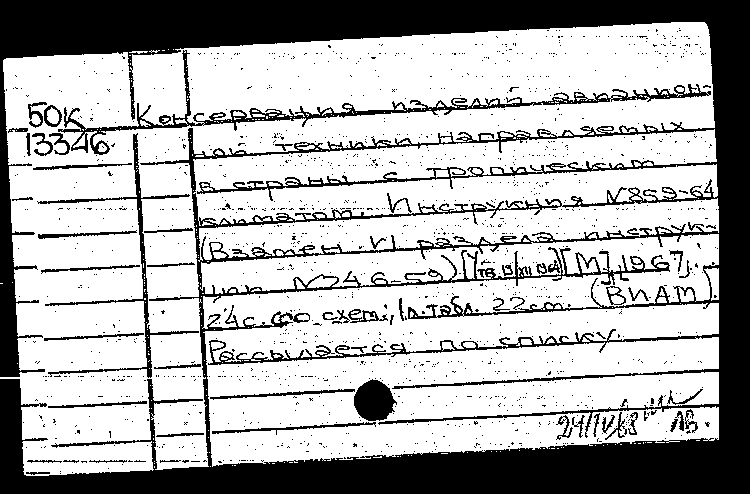 50К Консервация изделий авиацион-
13346 ной техники, направляемых
в страны с тропическим
климатом. Инструкция №859-64
(Взамен VI раздела инструк-
ции №746-59) [Утв. 19/XII 1964] [М.], 1967.
24 с. со схем.; 1 л. табл. 22 см. (ВИАМ).
Рассылается по списку.
24/IV/68 ЛВ.